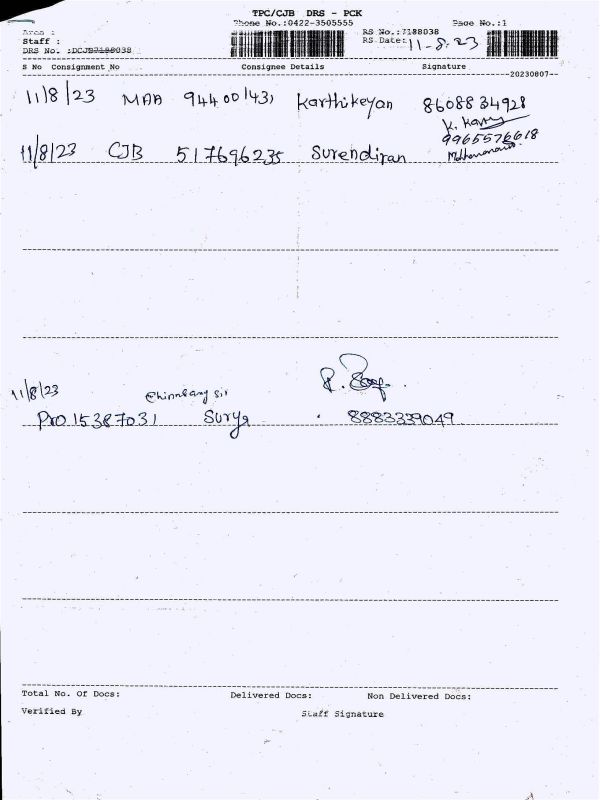 TPC/CJB DRS - PCK
Phone No.:0422-3505555 Page No.:1
Area : RS No.:7188038
Staff : RS Date: 11-8-23
DRS No. :DCJB7188038
S No Consignment No Consignee Details Signature
20230807
11/8/23 MAA 944001431 Karthikeyan 8608834928
K. Karthy
11/8/23 CJB 517696235 Surendiran 9965576618
11/8/23 Chinnsamy sir
Pro 15387031 Surya 8883339049
Total No. Of Docs: Delivered Docs: Non Delivered Docs:
Verified By Staff Signature